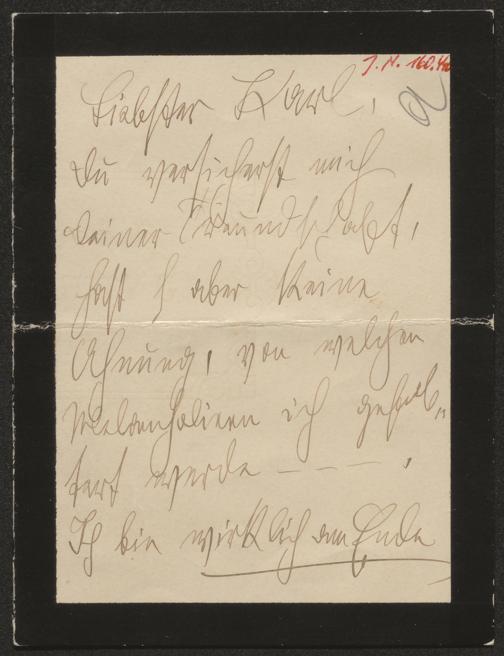 J.N. 160.4
a
Liebster Karl,
Du versicherst mich
Deiner Freundschaft,
hast aber keine
Ahnung, von welchen
Melancholieen ich gefol„
tert werde — — — .
Ich bin wirklich am Ende